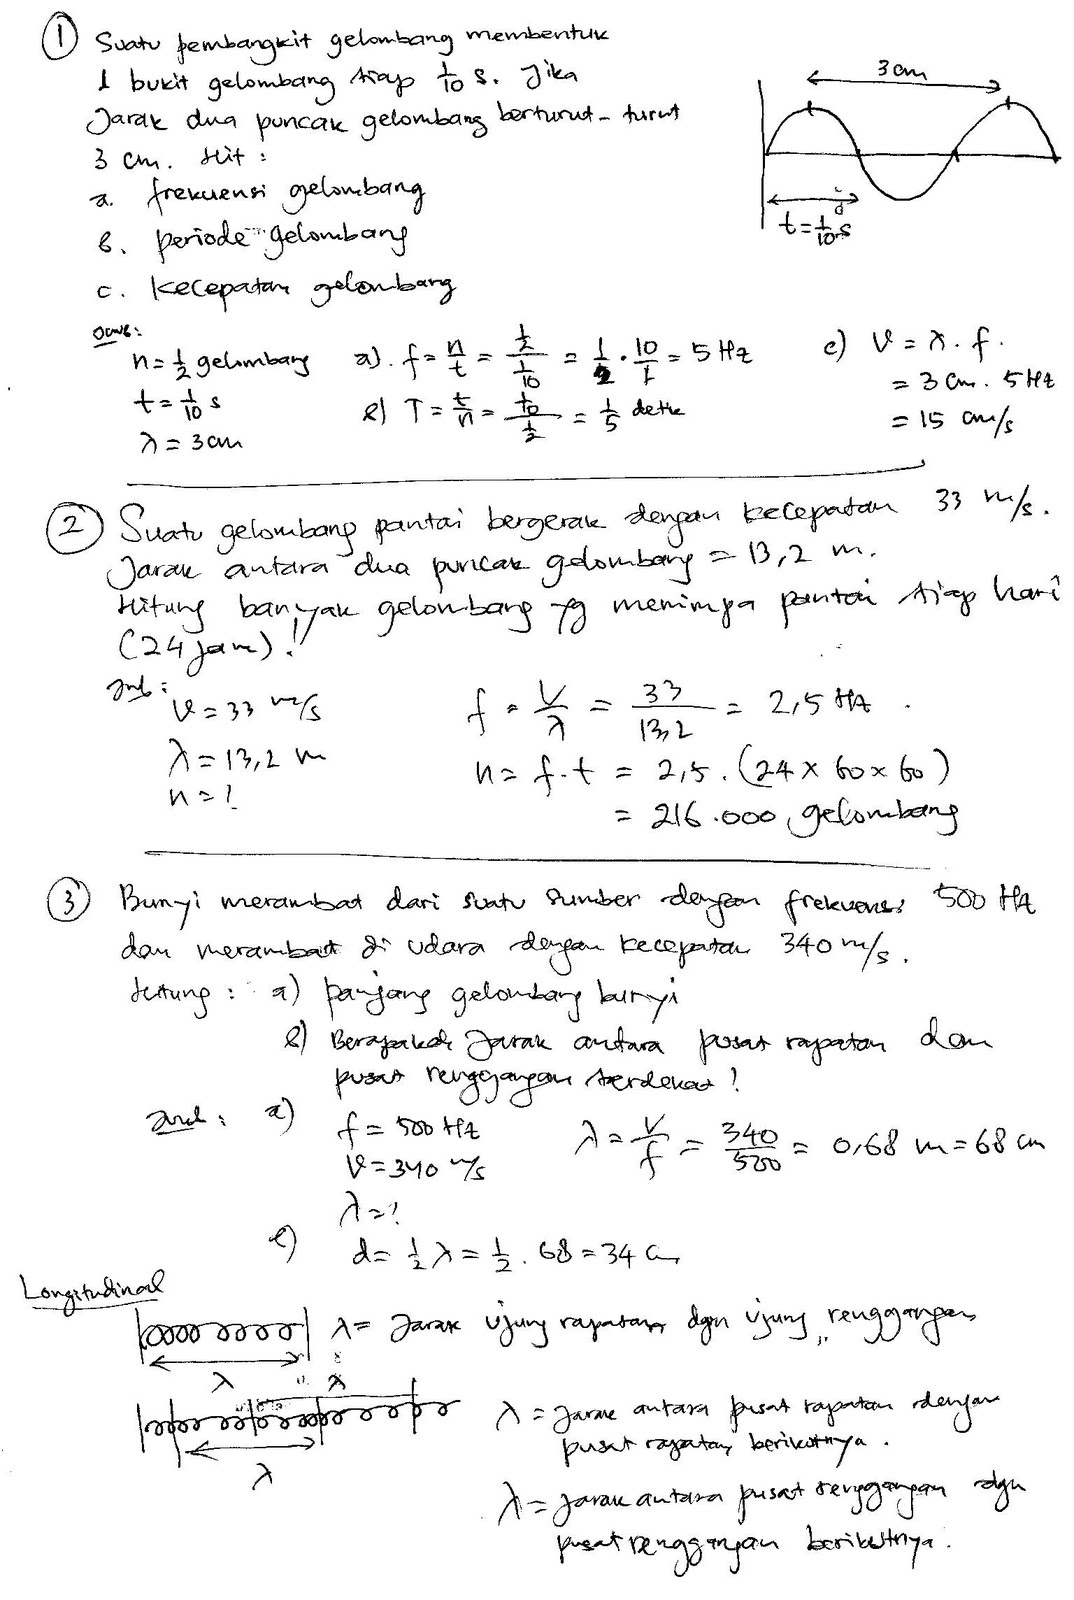 ① Suatu pembangkit gelombang membentuk
1 bukit gelombang tiap 1/10 s. Jika
Jarak dua puncak gelombang berturut-turut
3 cm. Hit :
a. frekuensi gelombang
b. periode gelombang
c. kecepatan gelombang
3 cm
t = 1/10 s
Jawb:
n = 1/2 gelombang
t = 1/10 s
λ = 3 cm
a). f = n/t = (1/2)/(1/10) = 1/2 . 10/1 = 5 Hz
b) T = t/n = (1/10)/(1/2) = 1/5 detik
c) v = λ . f.
= 3 cm . 5 Hz
= 15 cm/s
② Suatu gelombang pantai bergerak dengan kecepatan 33 m/s.
Jarak antara dua puncak gelombang = 13,2 m.
Hitung banyak gelombang yg menimpa pantai tiap hari
(24 jam).!
Jwb :
v = 33 m/s
λ = 13,2 m
n = ?
f = v/λ = 33/13,2 = 2,5 Hz .
n = f . t = 2,5 . (24 x 60 x 60)
= 216.000 gelombang
③ Bunyi merambat dari suatu sumber dengan frekuensi 500 Hz
dan merambat di udara dengan kecepatan 340 m/s.
Hitung : a) panjang gelombang bunyi
b) Berapakah Jarak antara pusat rapatan dan
pusat renggangan terdekat !
Jwb : a)
f = 500 Hz
v = 340 m/s
λ = ?
λ = v/f = 340/500 = 0,68 m = 68 cm
b) d = 1/2 λ = 1/2 . 68 = 34 cm
Longitudinal
λ = Jarak ujung rapatan dgn ujung renggangan
λ
λ
λ
λ = Jarak antara pusat rapatan dengan
pusat rapatan berikutnya .
λ = Jarak antara pusat renggangan dgn
pusat renggangan berikutnya .